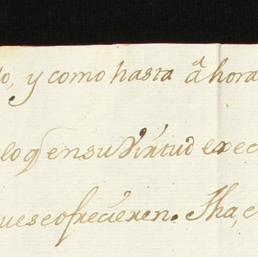 lo, y como hasta áhora
lo q en su Virtud exec
que se ofrecieren. Fha, e